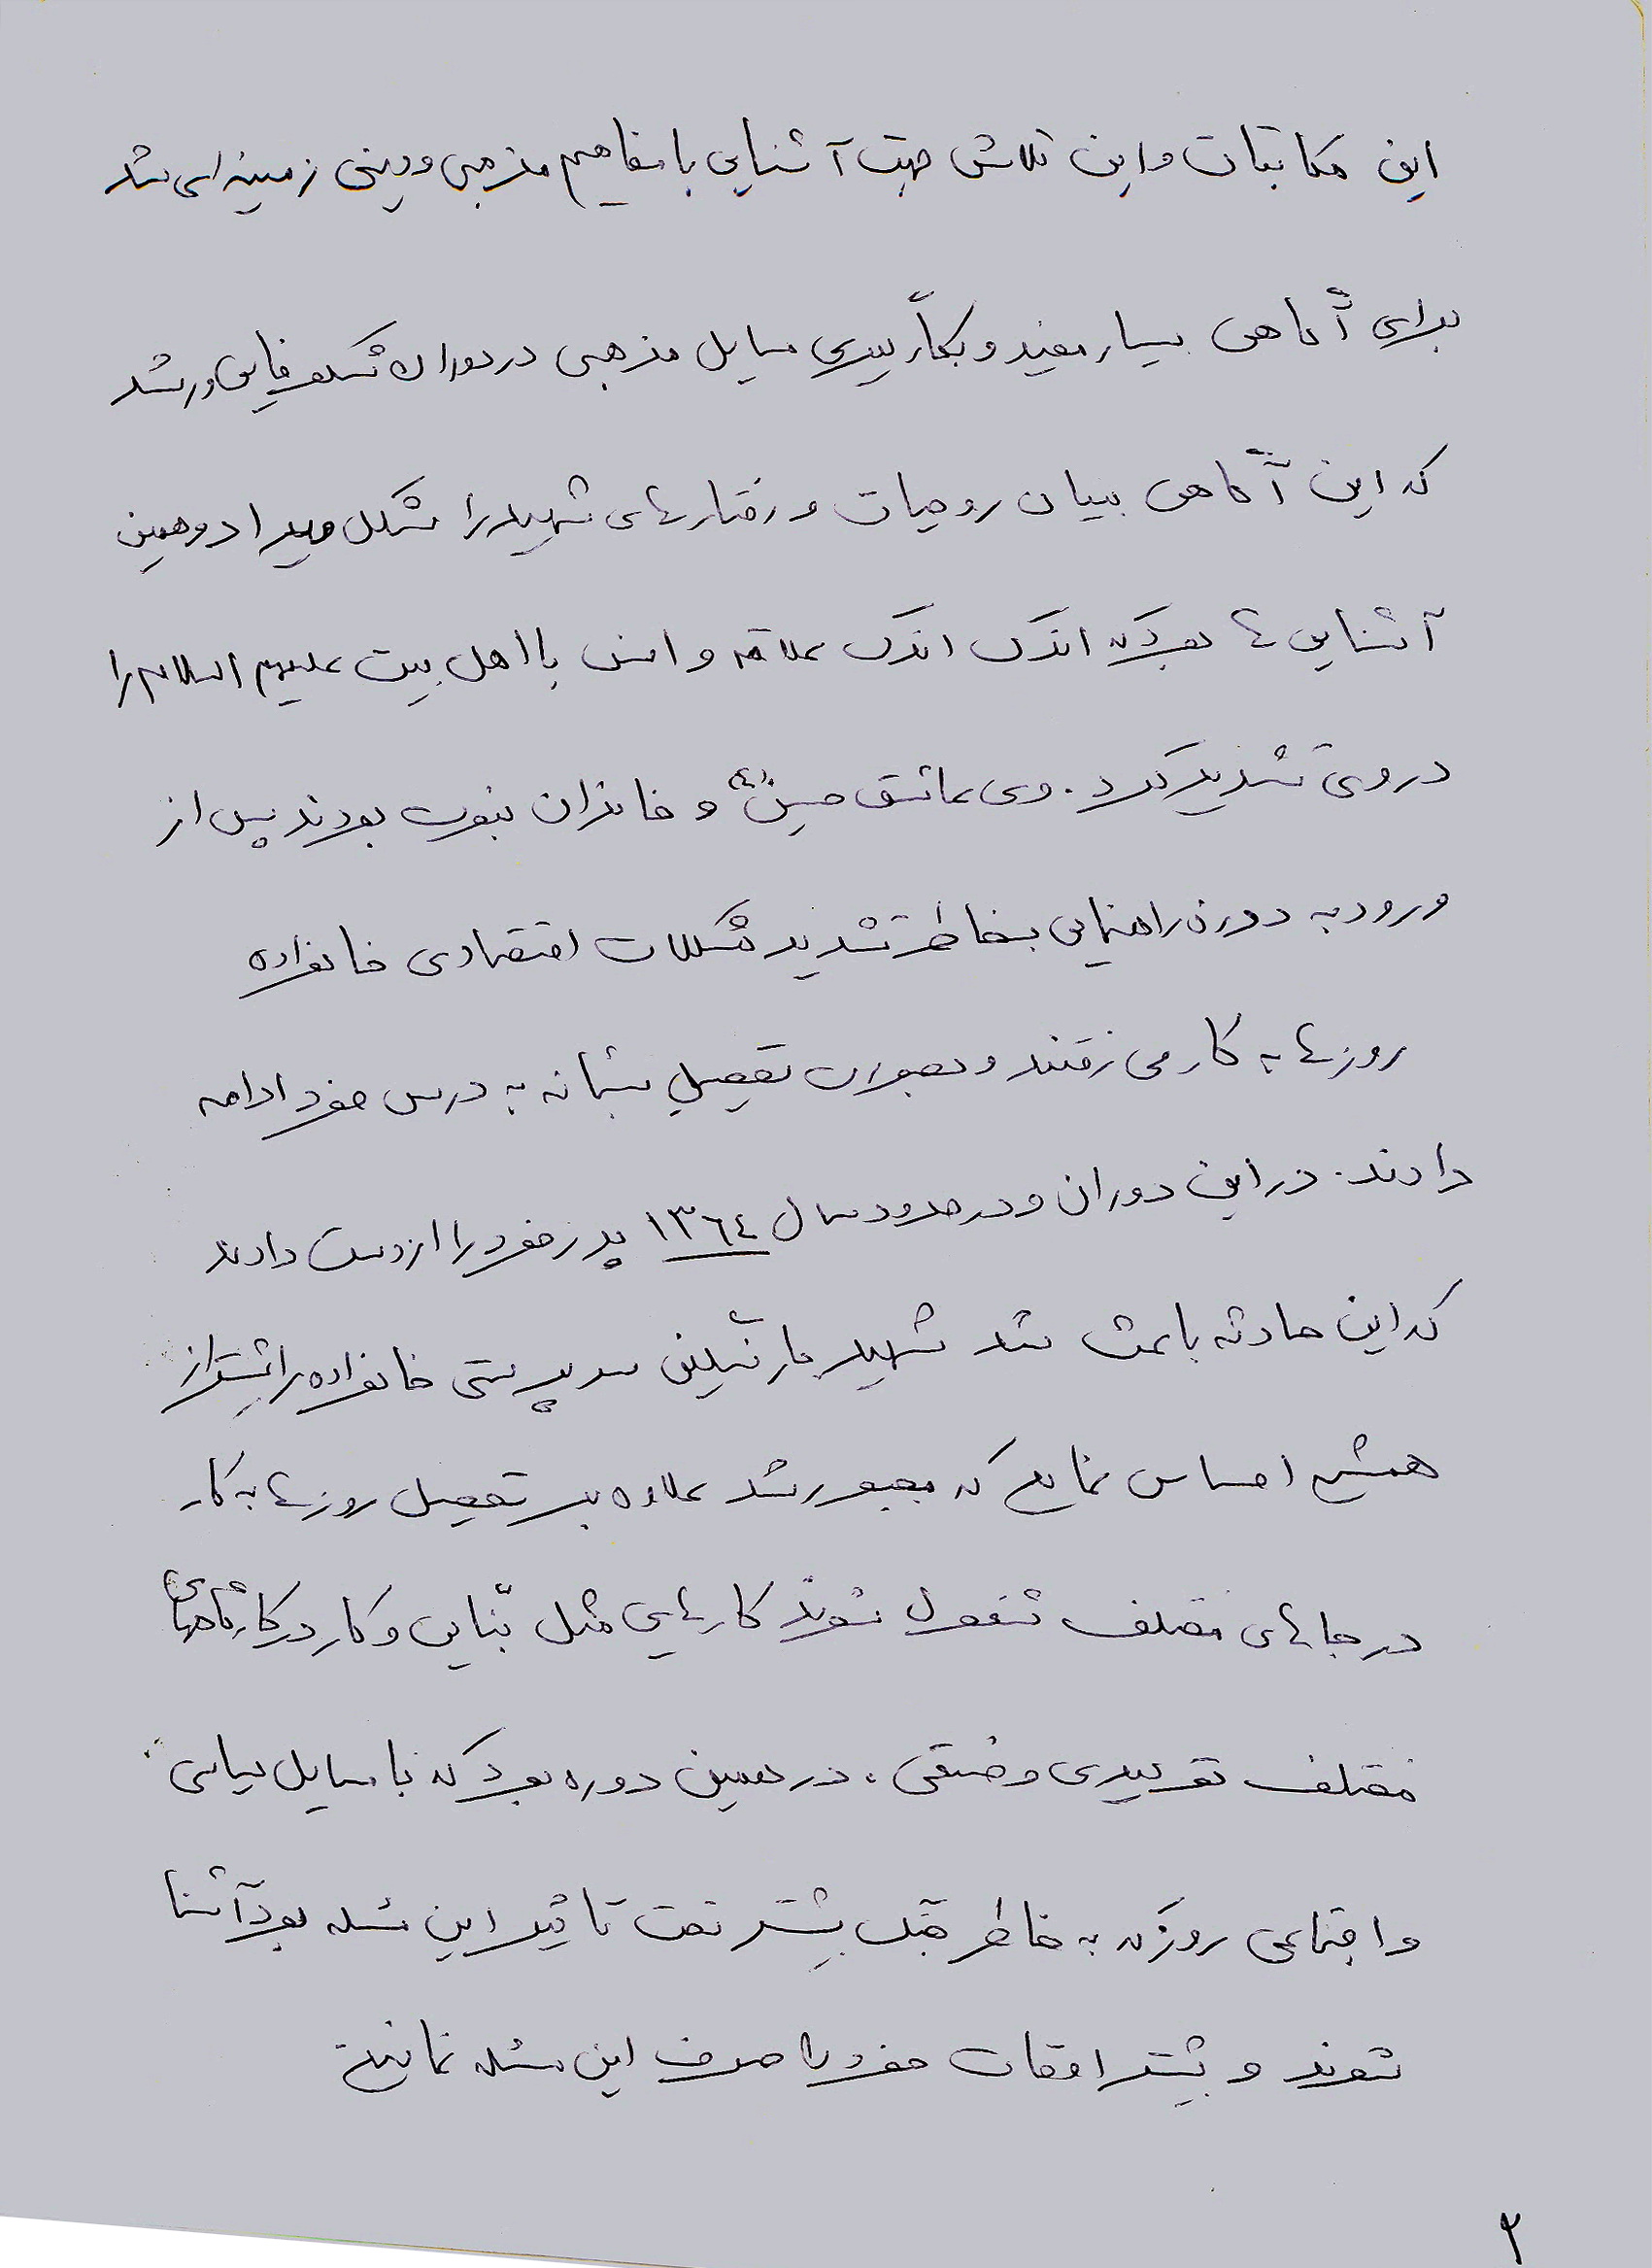 این مکاتبات و این تلاش جهت آشنایی با مفاهیم مذهبی و دینی زمینه ای شد
برای آگاهی بسیار مفید و بکارگیری مسایل مذهبی در دوران شکوفایی و رشد
که این آگاهی بنیان روحیات و رفتارهای شهید را شکل میداد و همین
آشنایی ها بود که اندک اندک علاقه و انس با اهل بیت علیهم السلام را
در وی تشدید کرد. وی عاشق حسین (ع) و خاندان نبوت بودند پس از
ورود به دوره راهنمایی بخاطر تشدید مشکلات اقتصادی خانواده
روزها به کار می رفتند و بصورت تحصیل شبانه به درس خود ادامه
دادند. در این دوران و در حدود سال ۱۳۶۴ پدر خود را از دست دادند
که این حادثه باعث شد شهید بار سنگین سرپرستی خانواده را بیشتر از
همیشه احساس نماید که مجبور شد علاوه بر تحصیل روزها به کار
در جاهای مختلف مشغول شوند کارهایی مثل بنّایی و کار در کارگاههای
مختلف تولیدی و صنعتی. در همین دوره بود که با مسایل سیاسی
و اجتماعی روز که به خاطر جنگ بیشتر تحت تاثیر این مسئله بود آشنا
شوند و بیشتر اوقات خود را صرف این مسئله نمایند
۲